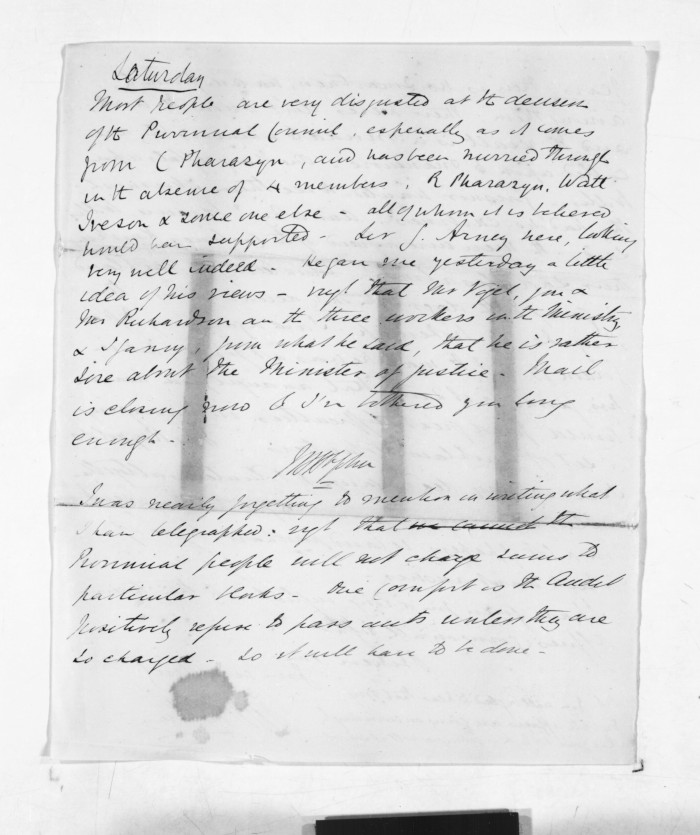 Saturday
Most people are very disgusted at th decision
of th Provincial Council, especially as it comes
from C Pharazyn, and has been hurried through
in th absence of 4 members, R Pharazyn, Watt
Iveson & some one else - all of whom it is believed
would have supported - Sir G. Arney here, looking
very well indeed - He gave me yesterday a little
idea of his views - viz that Mr Vogel, you &
Mr Richardson are th three workers in th Ministry
& I fancy, from what he said, that he is rather
sore about the Minister of Justice - Mail
is closing now & I've bothered you long
enough -
I was nearly forgetting to mention in writing what
I have telegraphed: viz that we cannot th
Provincial people will not charge sums to
particular blocks - One comfort is th Audit
positively refuse to pass accts unless they are
so charged - so it will have to be done -